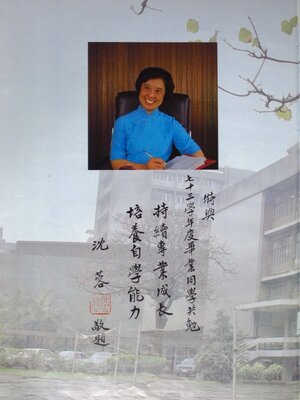 特與
七十三學年度畢業同學共勉
持續專業成長
培養自學能力
沈蓉
敬題